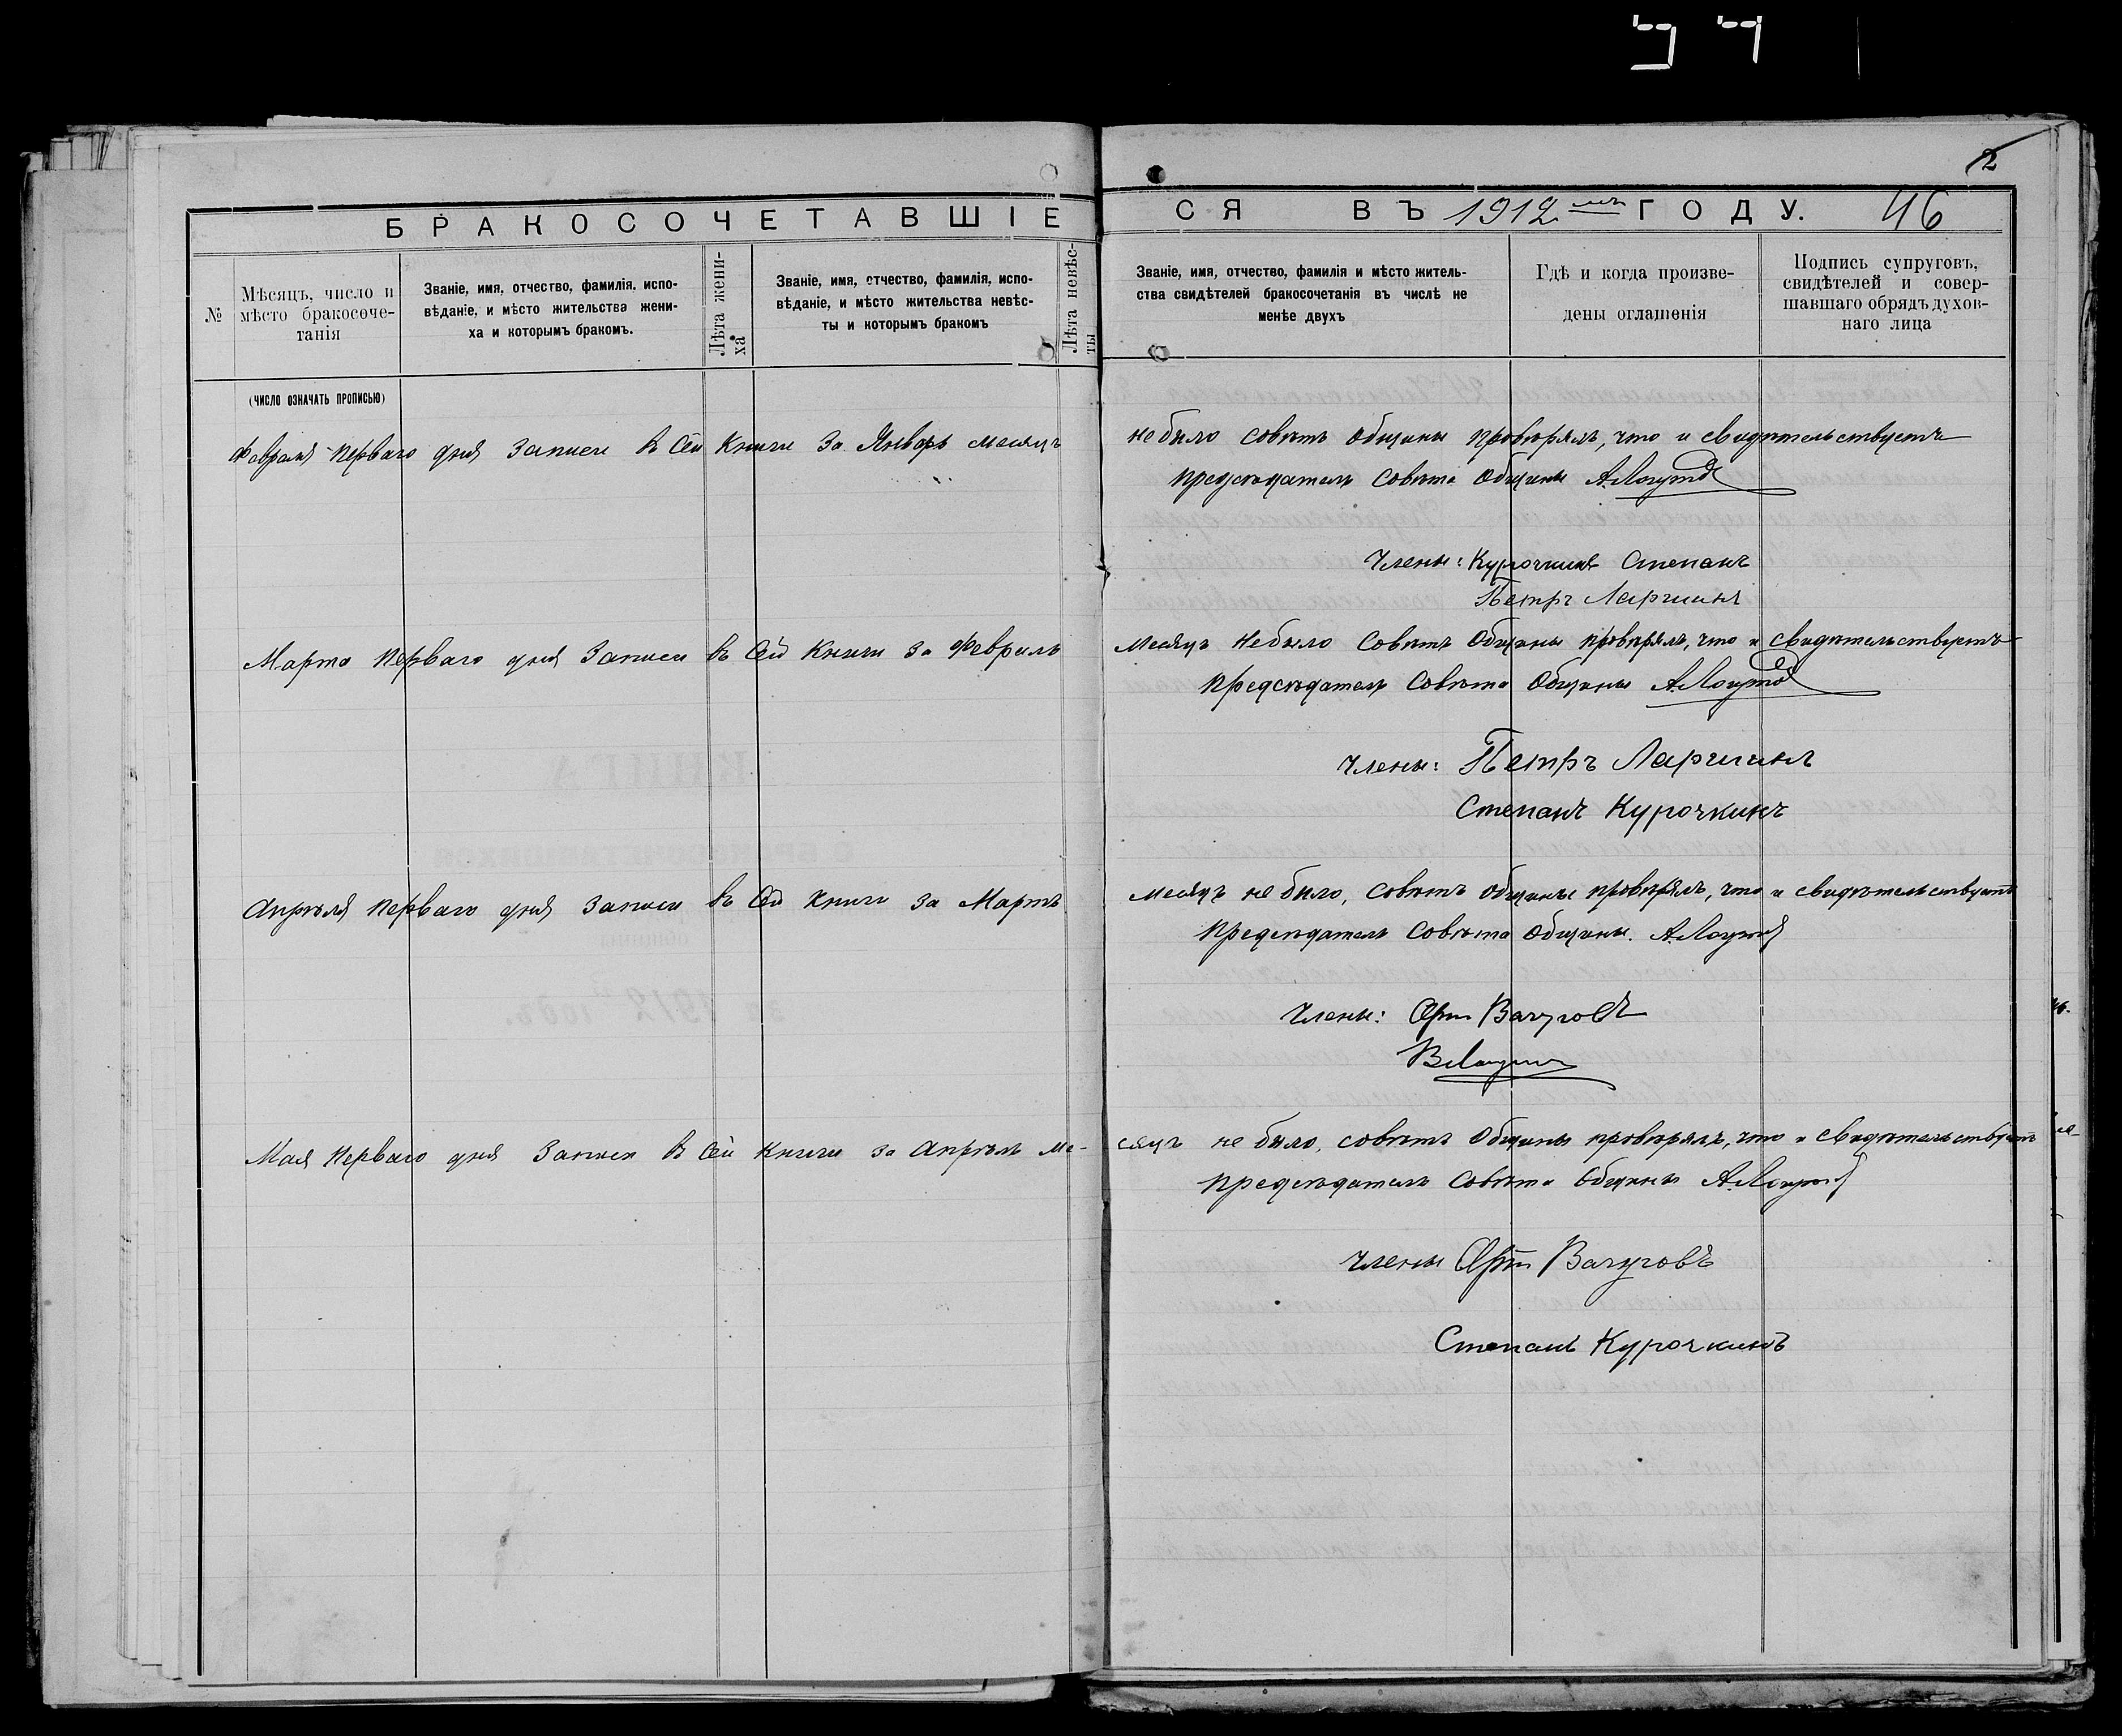 2
БРАКОСОЧЕТАВШІЕСЯ ВЪ 1912 мъ ГОДУ. 46
№
Мѣсяцъ, число и
мѣсто бракосоче-
танія
Званіе, имя, отчество, фамилія. испо-
вѣданіе, и мѣсто жительства жени-
ха и которымъ бракомъ.
Лѣта жени-
ха
Званіе, имя, отчество, фамилія, испо-
вѣданіе, и мѣсто жительства невѣс-
ты и которымъ бракомъ
Лѣта невѣс-
ты
Званіе, имя, отчество, фамилія и мѣсто житель-
ства свидѣтелей бракосочетанія въ числѣ не
менѣе двухъ
Гдѣ и когда произве-
дены оглашенія
Подпись супруговъ,
свидѣтелей и совер-
шавшаго обрядъ духов-
наго лица
(ЧИСЛО ОЗНАЧАТЬ ПРОПИСЬЮ)
Февраля перваго дня Записи въ Сей Книги За Январь месяцъ не было совѣтъ общины провѣрялъ, что и свидѣтельствуетъ
предсѣдатель Совѣта Общины
Члены: Курочкинъ Степанъ
Петръ Ларшинъ
Марта перваго дня Записи въ Сей Книги За Февраль месяцъ не было Совѣтъ Общины провѣрялъ, что и свидѣтельствуетъ
предсѣдатель Совѣта Общины
Члены: Петръ Ларшинъ
Степанъ Курочкинъ
Апрѣля перваго дня Записи въ Сей Книги За Мартъ месяцъ не было, совѣтъ общины провѣрялъ, что и свидѣтельствуетъ
предсѣдатель Совѣта Общины.
Члены: Вачуговъ
Мая перваго дня Записи въ Сей Книги за Апрѣль ме-сяцъ не было, совѣтъ Общины провѣрялъ, что и свидѣтельствуетъ
предсѣдатель Совѣта Общины
Члены Вачуговъ
Степанъ Курочкинъ